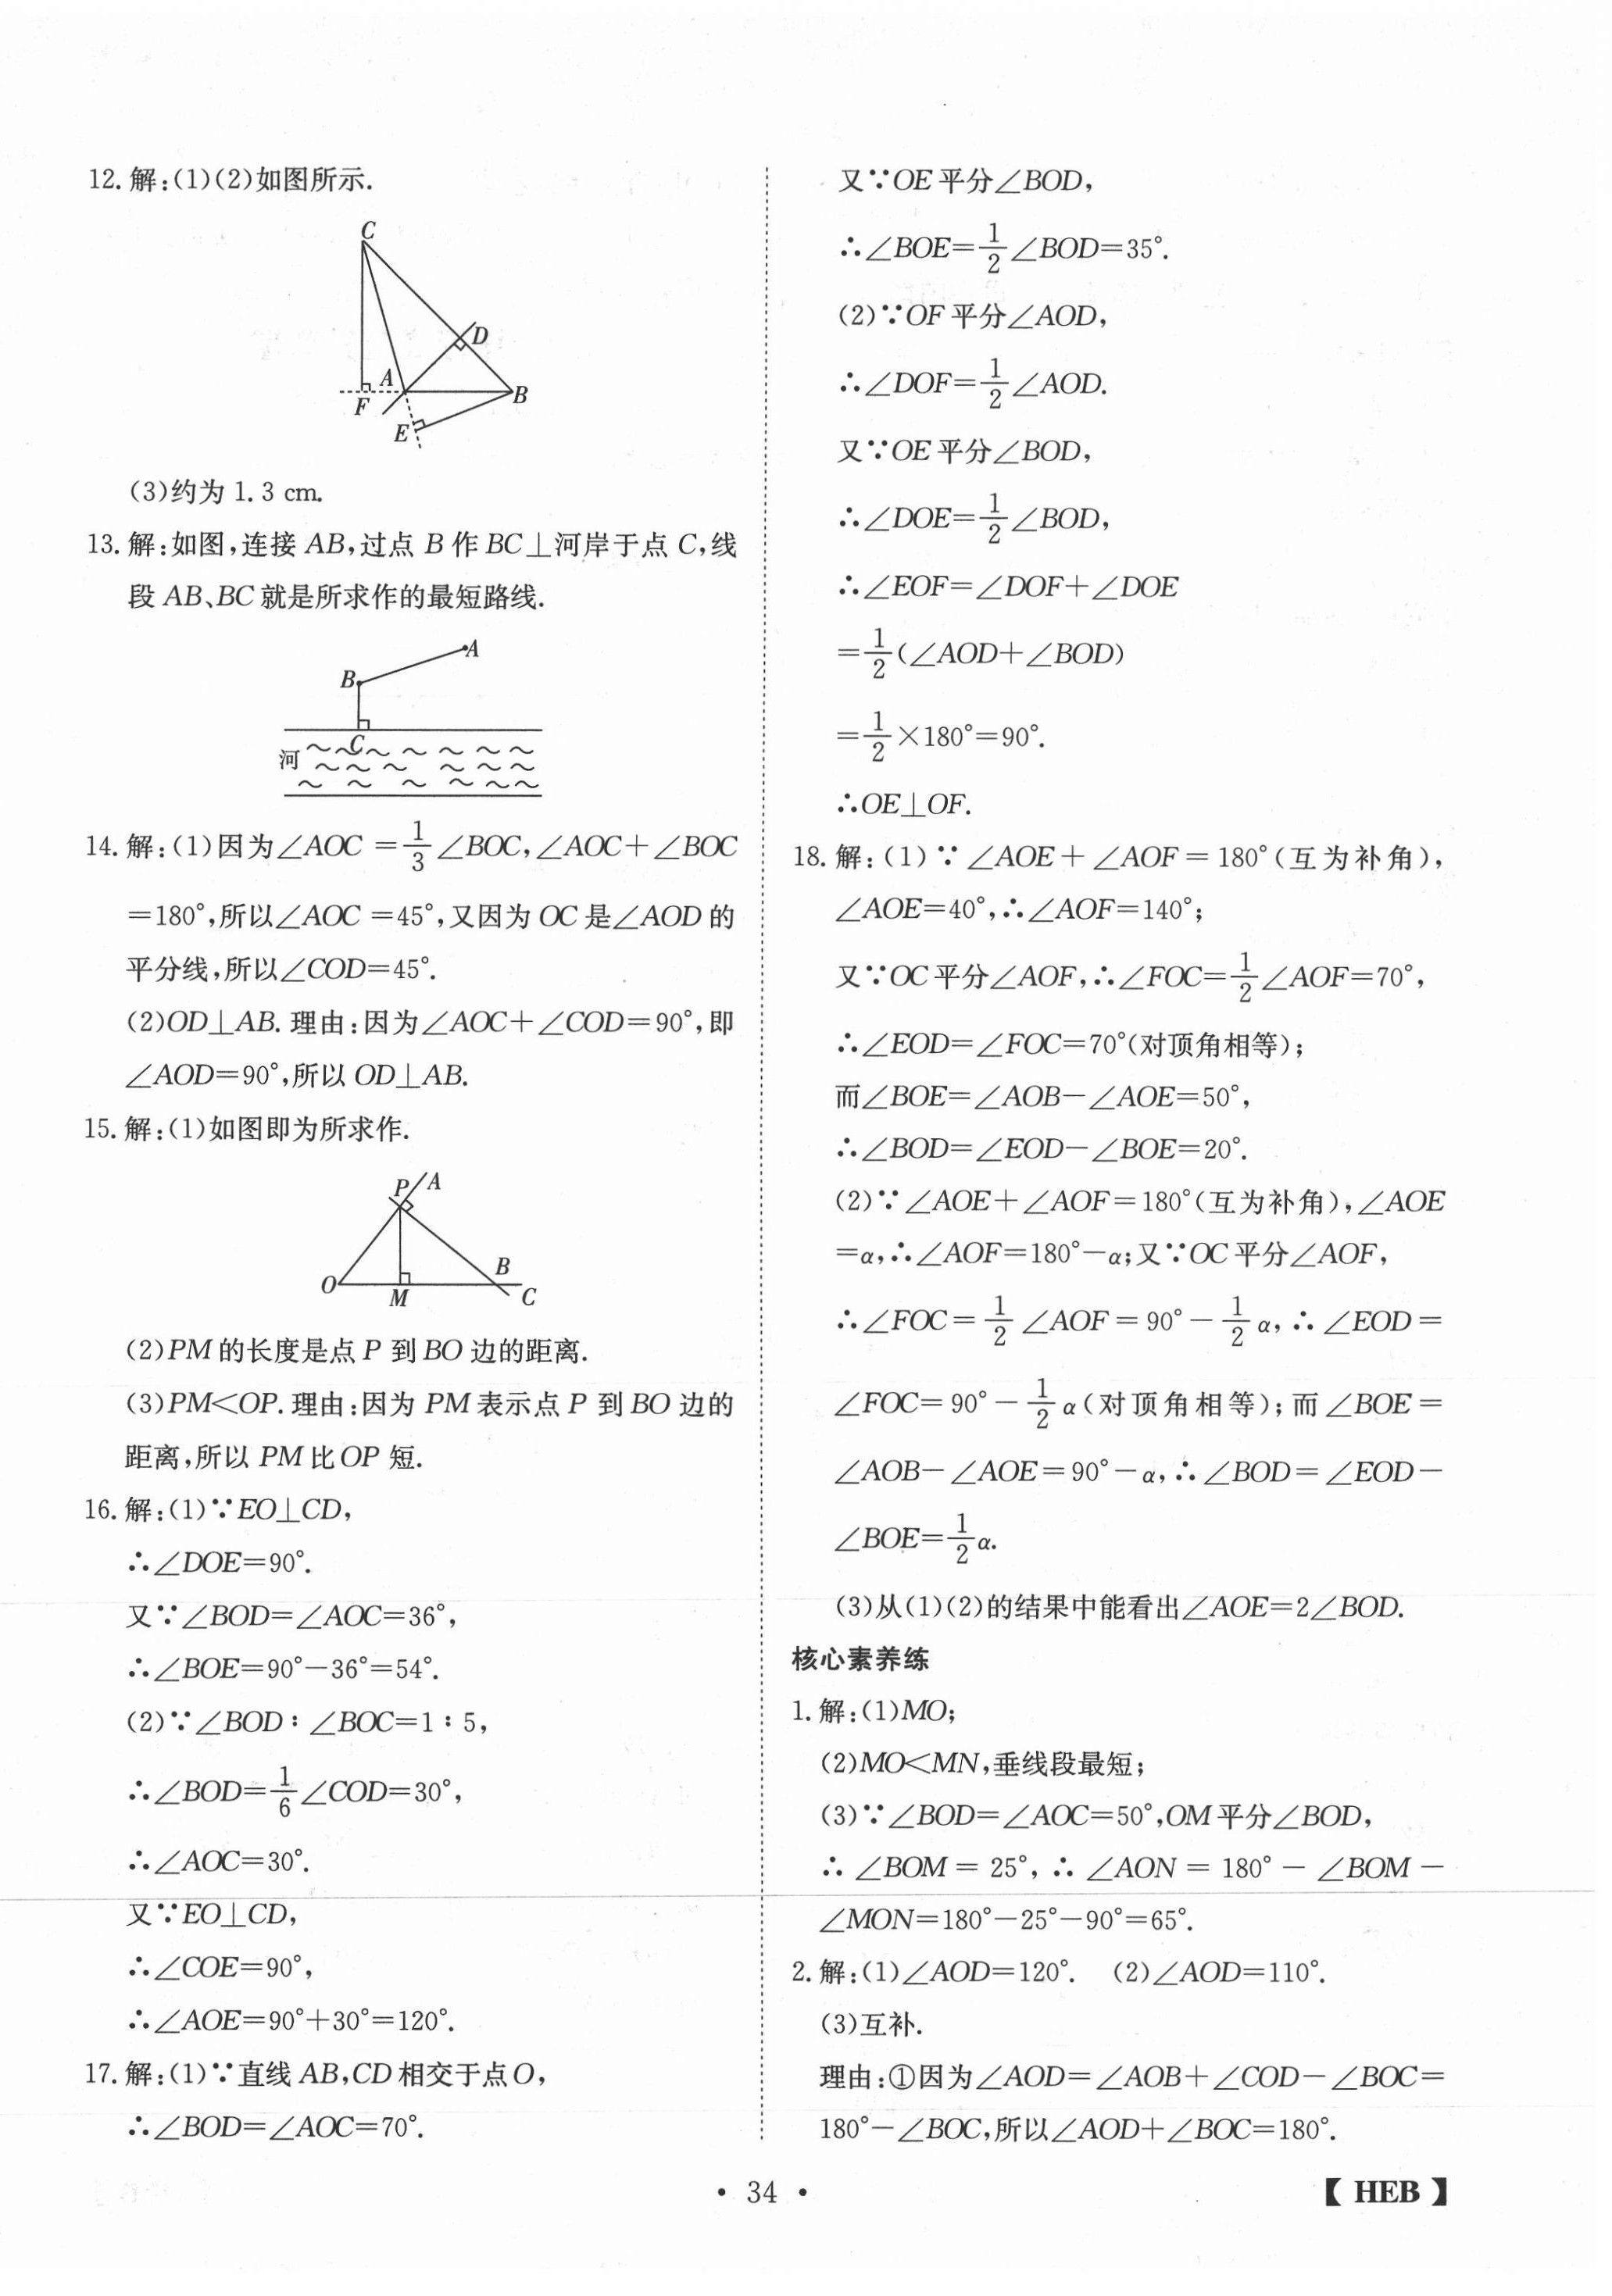 12. 解:(1)(2)如图所示.
C
D
A
F
B
E
(3)约为 1. 3 cm.
13. 解:如图,连接 AB,过点 B 作 BC⊥河岸于点 C,线
段 AB、BC 就是所求作的最短路线.
A
B
C
河
14. 解:(1)因为∠AOC =1/3∠BOC,∠AOC+∠BOC
=180°,所以∠AOC =45°,又因为 OC 是∠AOD 的
平分线,所以∠COD=45°.
(2)OD⊥AB. 理由:因为∠AOC+∠COD=90°,即
∠AOD=90°,所以 OD⊥AB.
15. 解:(1)如图即为所求作.
P A
B
O M C
(2)PM 的长度是点 P 到 BO 边的距离.
(3)PM<OP. 理由:因为 PM 表示点 P 到 BO 边的
距离,所以 PM 比 OP 短.
16. 解:(1)∵EO⊥CD,
∴∠DOE=90°.
又∵∠BOD=∠AOC=36°,
∴∠BOE=90°-36°=54°.
(2)∵∠BOD∶∠BOC=1∶5,
∴∠BOD=1/6∠COD=30°,
∴∠AOC=30°.
又∵EO⊥CD,
∴∠COE=90°,
∴∠AOE=90°+30°=120°.
17. 解:(1)∵直线 AB,CD 相交于点 O,
∴∠BOD=∠AOC=70°.
又∵OE 平分∠BOD,
∴∠BOE=1/2∠BOD=35°.
(2)∵OF 平分∠AOD,
∴∠DOF=1/2∠AOD.
又∵OE 平分∠BOD,
∴∠DOE=1/2∠BOD,
∴∠EOF=∠DOF+∠DOE
=1/2(∠AOD+∠BOD)
=1/2×180°=90°.
∴OE⊥OF.
18. 解:(1)∵∠AOE+∠AOF=180°(互为补角),
∠AOE=40°,∴∠AOF=140°;
又∵OC 平分∠AOF,∴∠FOC=1/2∠AOF=70°,
∴∠EOD=∠FOC=70°(对顶角相等);
而∠BOE=∠AOB-∠AOE=50°,
∴∠BOD=∠EOD-∠BOE=20°.
(2)∵∠AOE+∠AOF=180°(互为补角),∠AOE
=α,∴∠AOF=180°-α;又∵OC 平分∠AOF,
∴∠FOC=1/2∠AOF=90°-1/2α,∴∠EOD=
∠FOC=90°-1/2α(对顶角相等);而∠BOE=
∠AOB-∠AOE=90°-α,∴∠BOD=∠EOD-
∠BOE=1/2α.
(3)从(1)(2)的结果中能看出∠AOE=2∠BOD.
核心素养练
1. 解:(1)MO;
(2)MO<MN,垂线段最短;
(3)∵∠BOD=∠AOC=50°,OM 平分∠BOD,
∴∠BOM=25°,∴∠AON=180°-∠BOM-
∠MON=180°-25°-90°=65°.
2. 解:(1)∠AOD=120°. (2)∠AOD=110°.
(3)互补.
理由:①因为∠AOD=∠AOB+∠COD-∠BOC=
180°-∠BOC,所以∠AOD+∠BOC=180°.
• 34 •
【 HEB 】